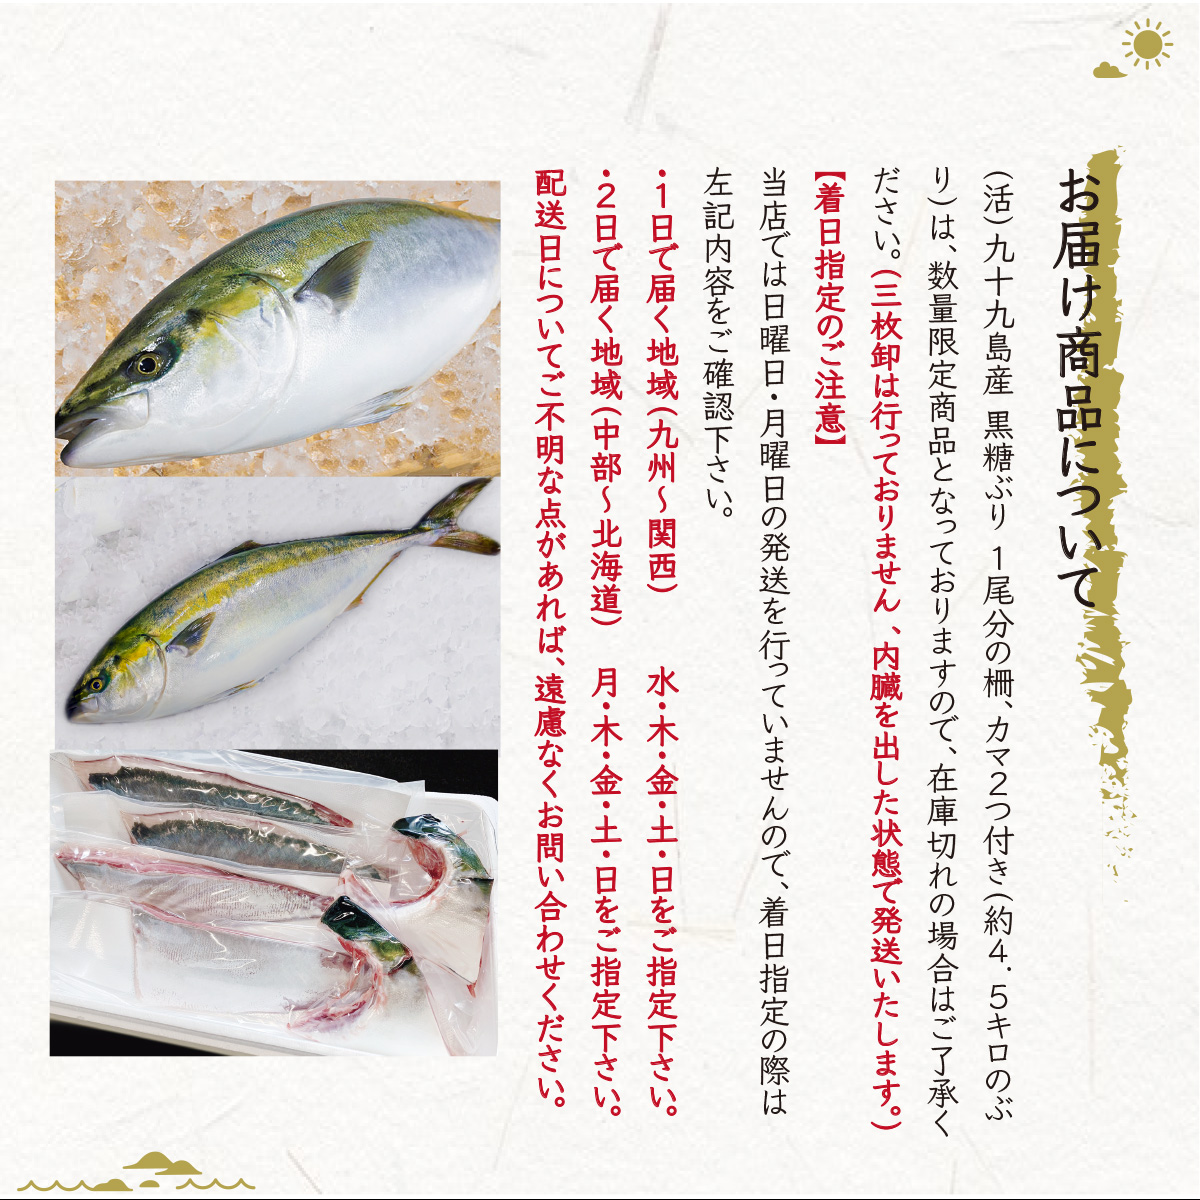 お届け商品について
(活)九十九島産 黒糖ぶり 1尾分の柵、カマ2つ付き(約4.5キロのぶ
り)は、数量限定商品となっておりますので、在庫切れの場合はご了承く
ださい。(三枚卸は行っておりません、内臓を出した状態で発送いたします。)
【着日指定のご注意】
当店では日曜日・月曜日の発送を行っていませんので、着日指定の際は
左記内容をご確認下さい。
・1日で届く地域(九州～関西) 水・木・金・土・日をご指定下さい。
・2日で届く地域(中部～北海道) 月・木・金・土・日をご指定下さい。
配送日についてご不明な点があれば、遠慮なくお問い合わせください。